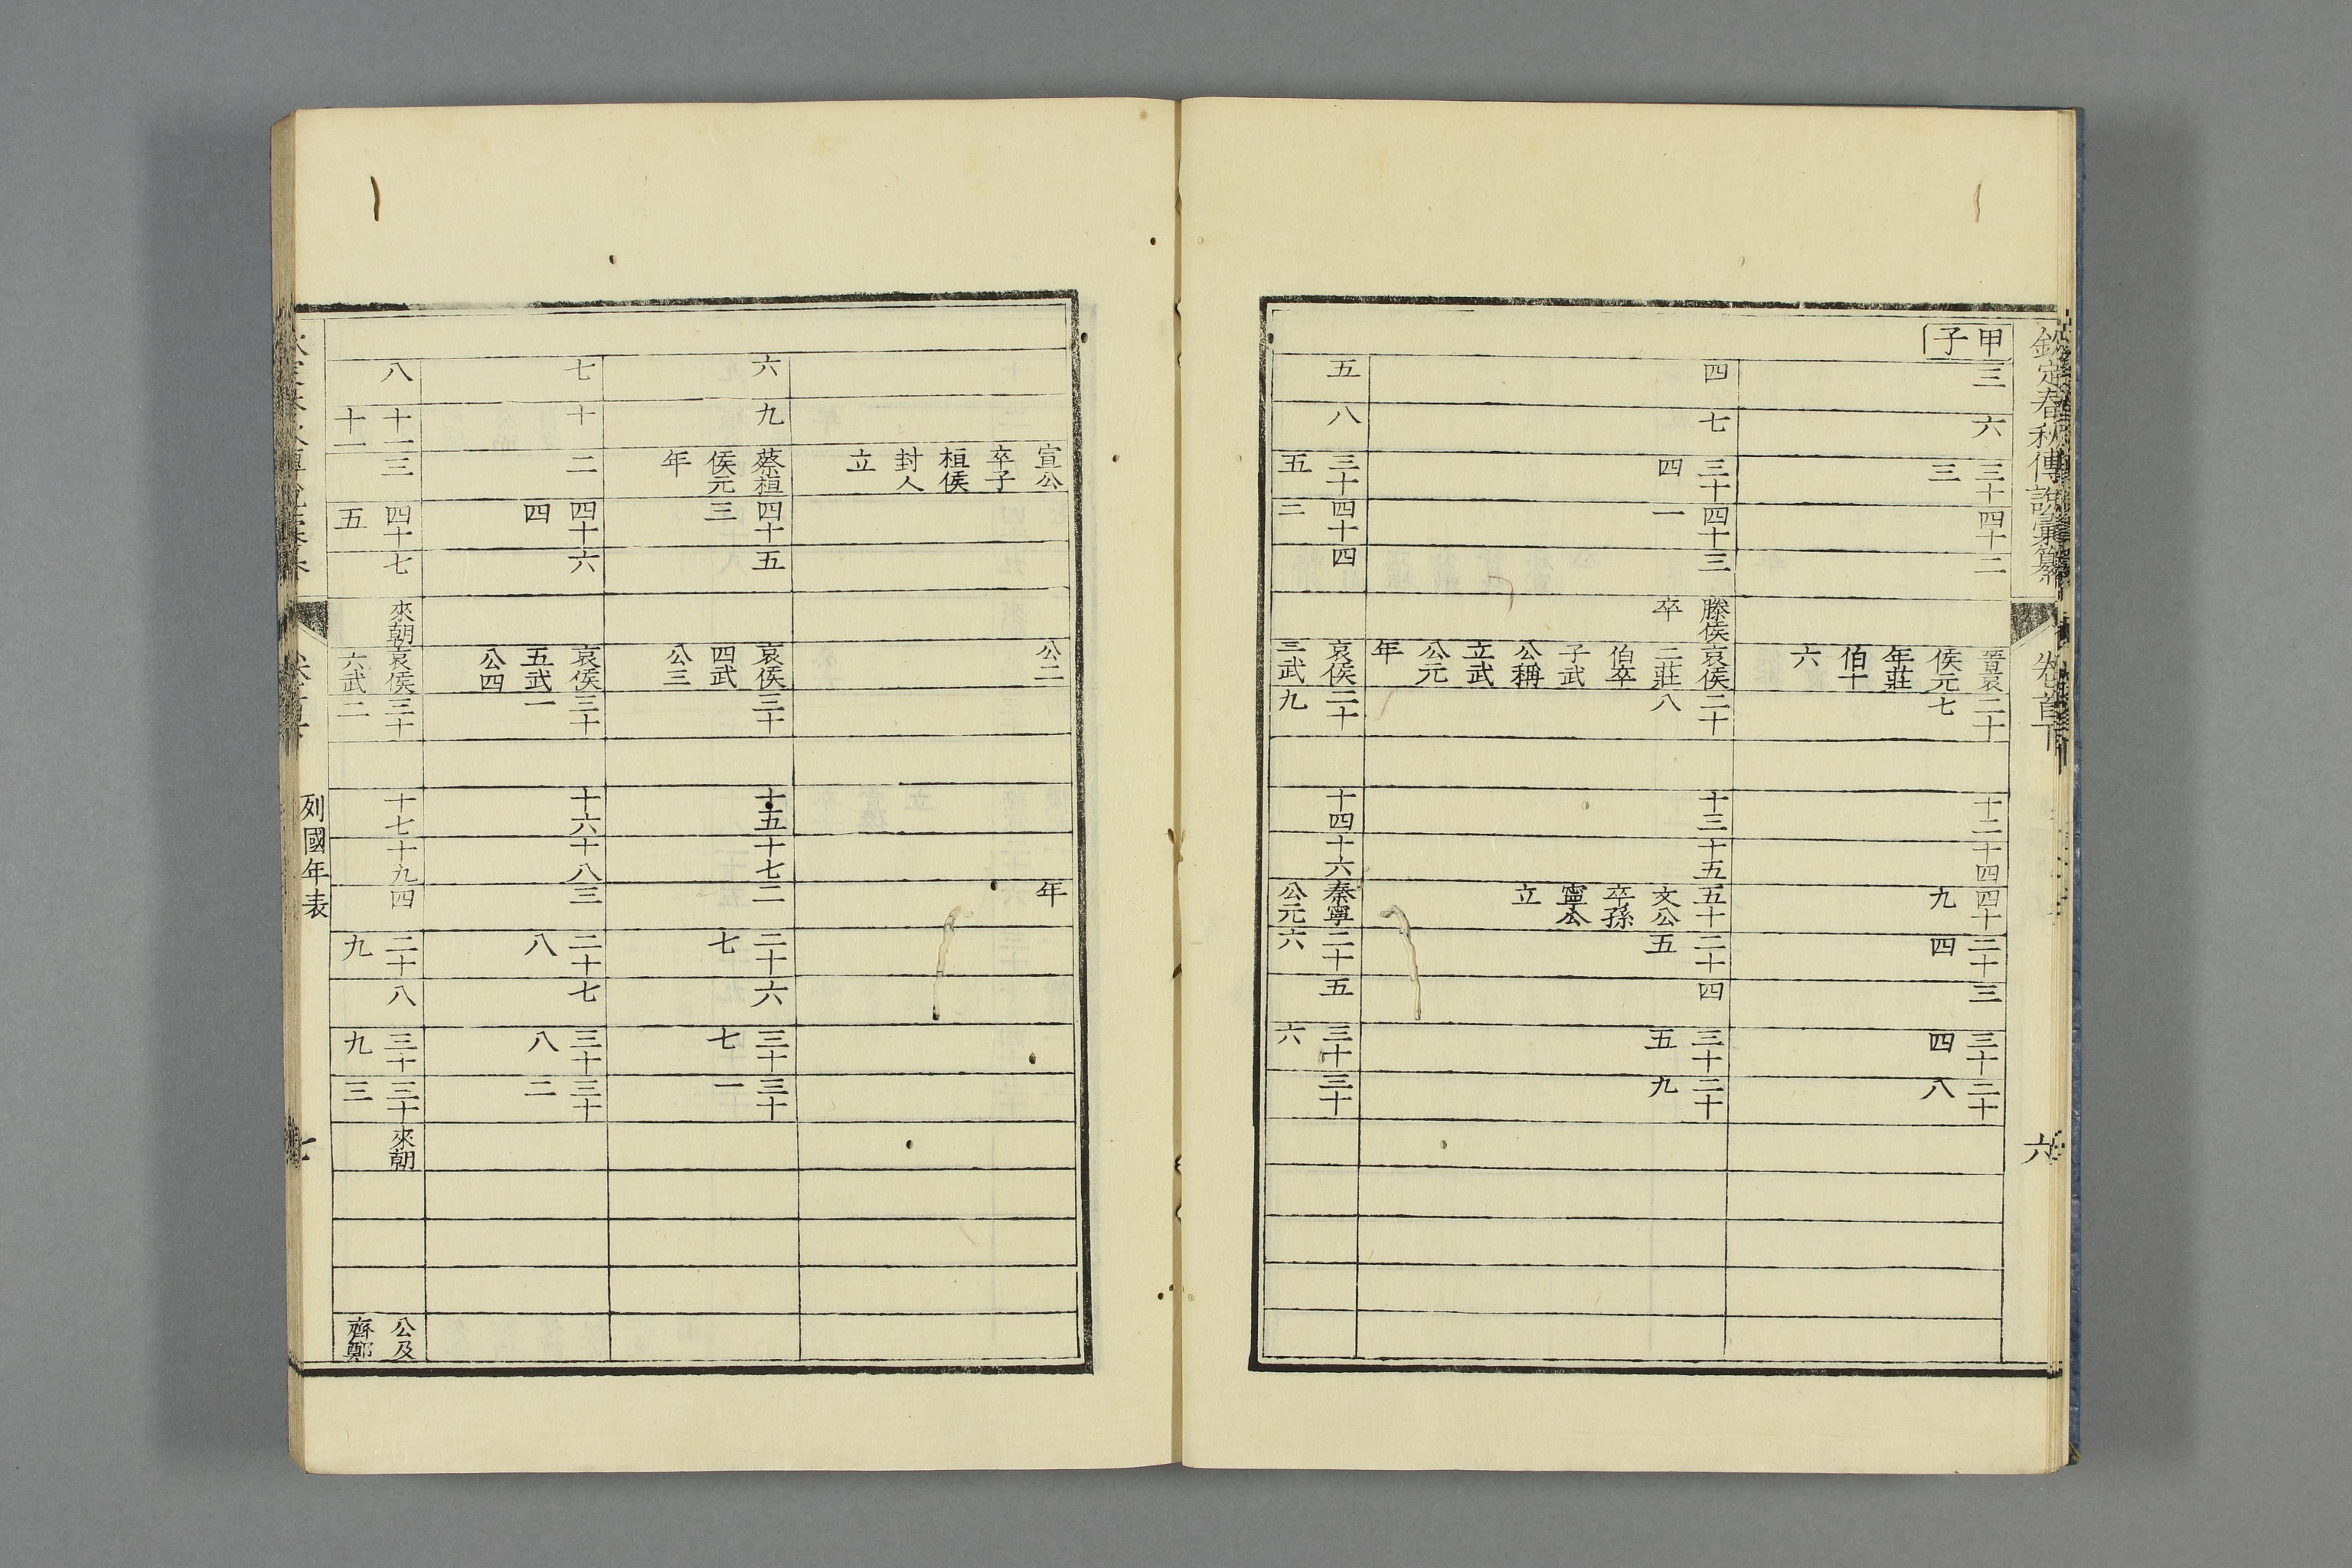 欽定春秋傳說彙纂
卷首下
六
甲子
三
六
三十三
四十
二
晉哀侯元年莊伯十六
二十七
十二
十四
四十九
二十四
三
三十四
二十八
四
七
三十四
四十一
三
滕侯卒
哀侯二莊伯卒子武公稱立武公元年
二十八
十三
十五
五十
文公卒孫寧公立
二十五
四
三十五
二十九
五
八
三十五
四十二
四
哀侯三武
二十九
十四
十六
秦寧公元
二十六
五
三十六
三十
宣公卒子桓侯封人立
公二
年
六
九
蔡桓侯元年
四十三
五
哀侯四武公三
三十
十五
十七
二
二十七
六
三十七
三十一
七
十
二
四十四
六
哀侯五武公四
三十一
十六
十八
三
二十八
七
三十八
三十二
八
十一
十一
三
四十五
七
來朝
哀侯六武
三十二
十七
十九
四
二十九
八
三十九
三十三
來朝
公及齊鄭
列國年表
七